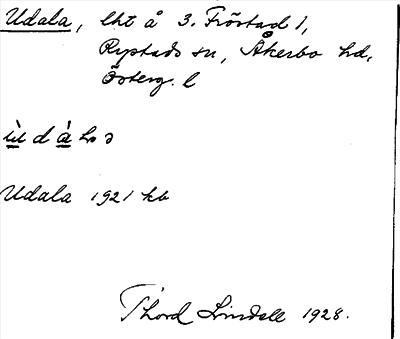 Udala, lht å 3. Fröstad 1,
Rystads sn, Åkerbo hd,
Österg. l
Udala 1921 kb
Thord Lindell 1928.